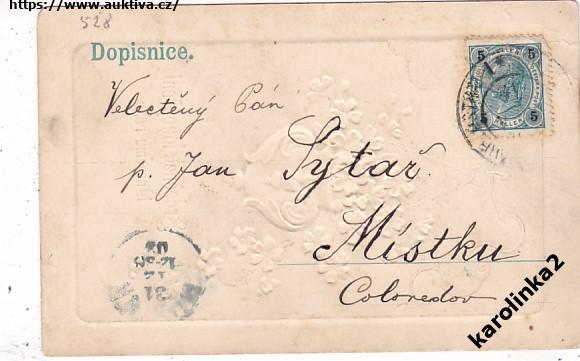 https://www.auktiva.cz/
528
Dopisnice.
5 5
Velectěný Pán
p. Jan Sytař
5 5
HELLER
Místku
Coloredov
31
12
02
karolinka2